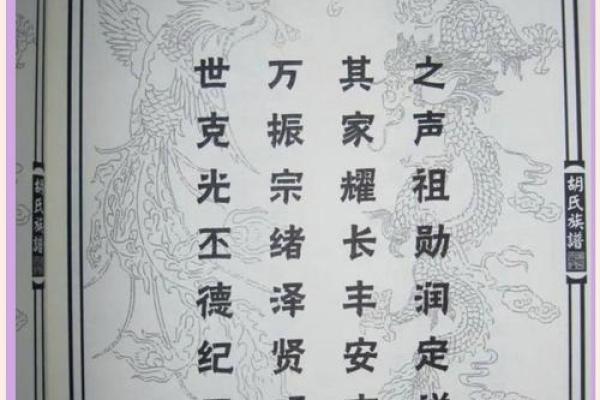 世万其之
克振家声
光宗耀祖
丕绪长勋
德泽丰润
纪贤安定
胡氏族譜
胡氏族譜